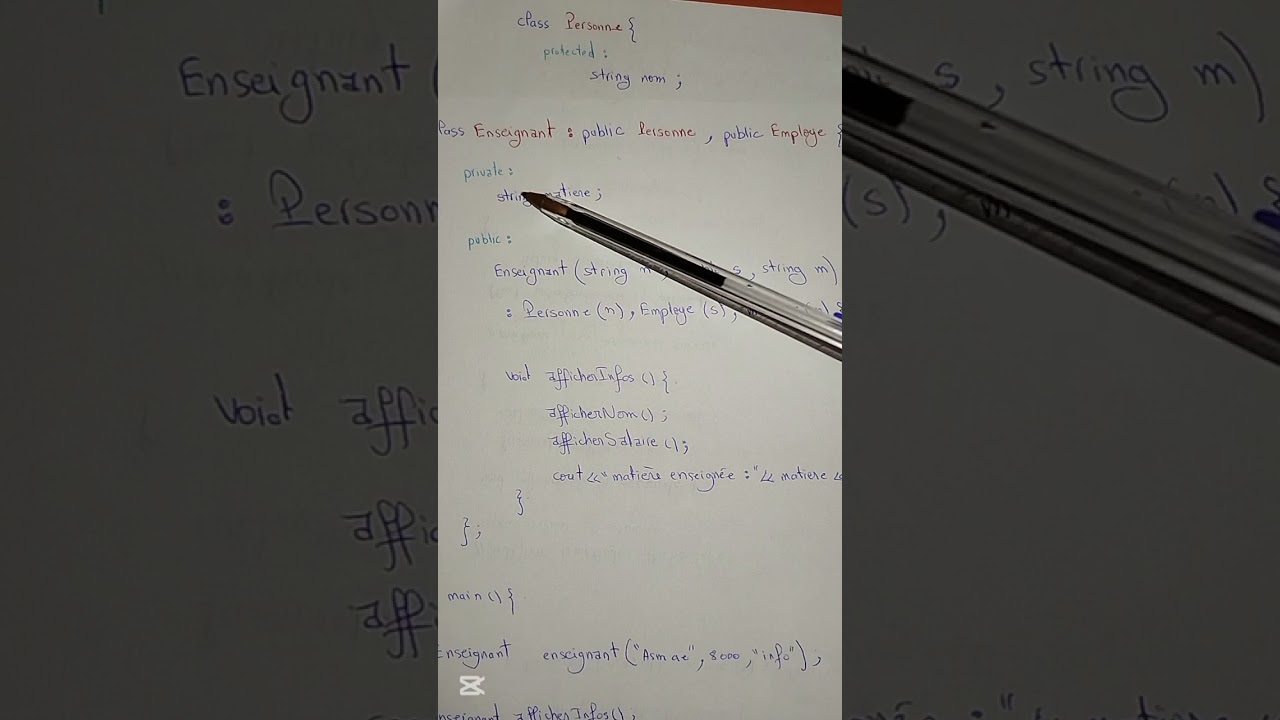 class Personne {
protected :
string nom ;
class Enseignant : public Personne , public Employe {
private :
string matiere ;
public :
Enseignant (string s , string m)
: Personne (n) , Employe (s) ,
void afficherInfos () {
afficherNom () ;
afficherSalaire () ;
cout << "matière enseignée :" << matiere <<
}
} ;
main () {
Enseignant enseignant ("Asmae" , 8000 , "info") ;
enseignant afficherInfos () ;